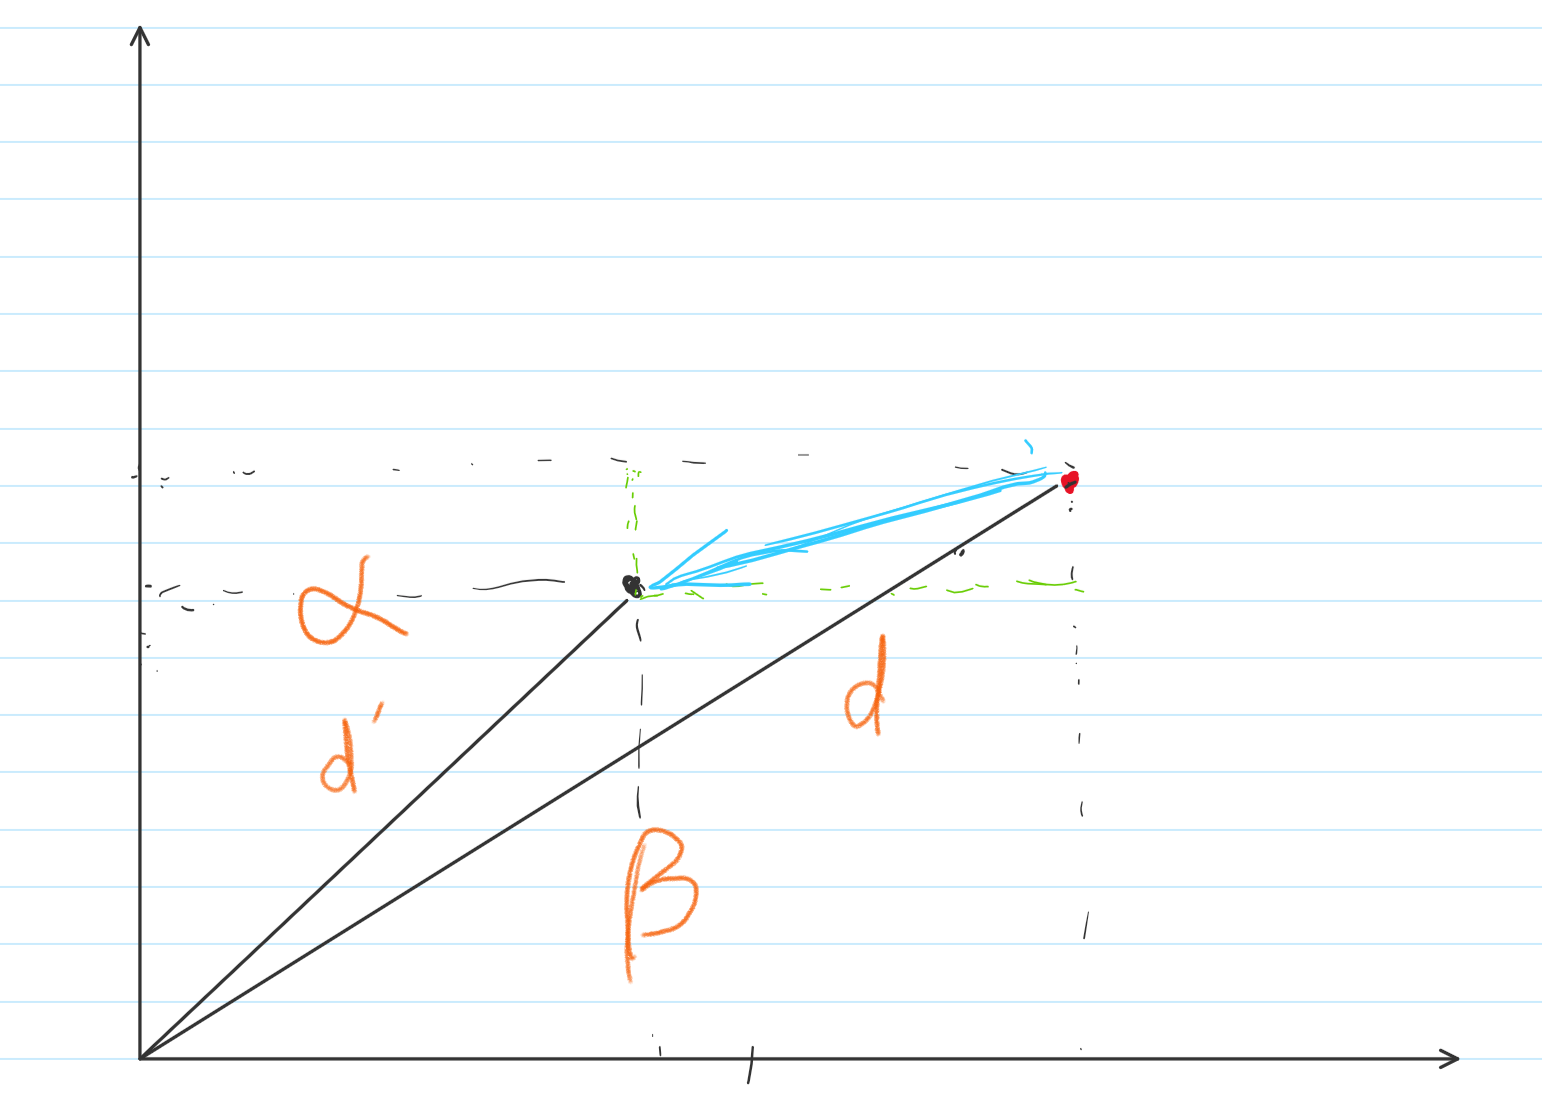 α
d'
d
β